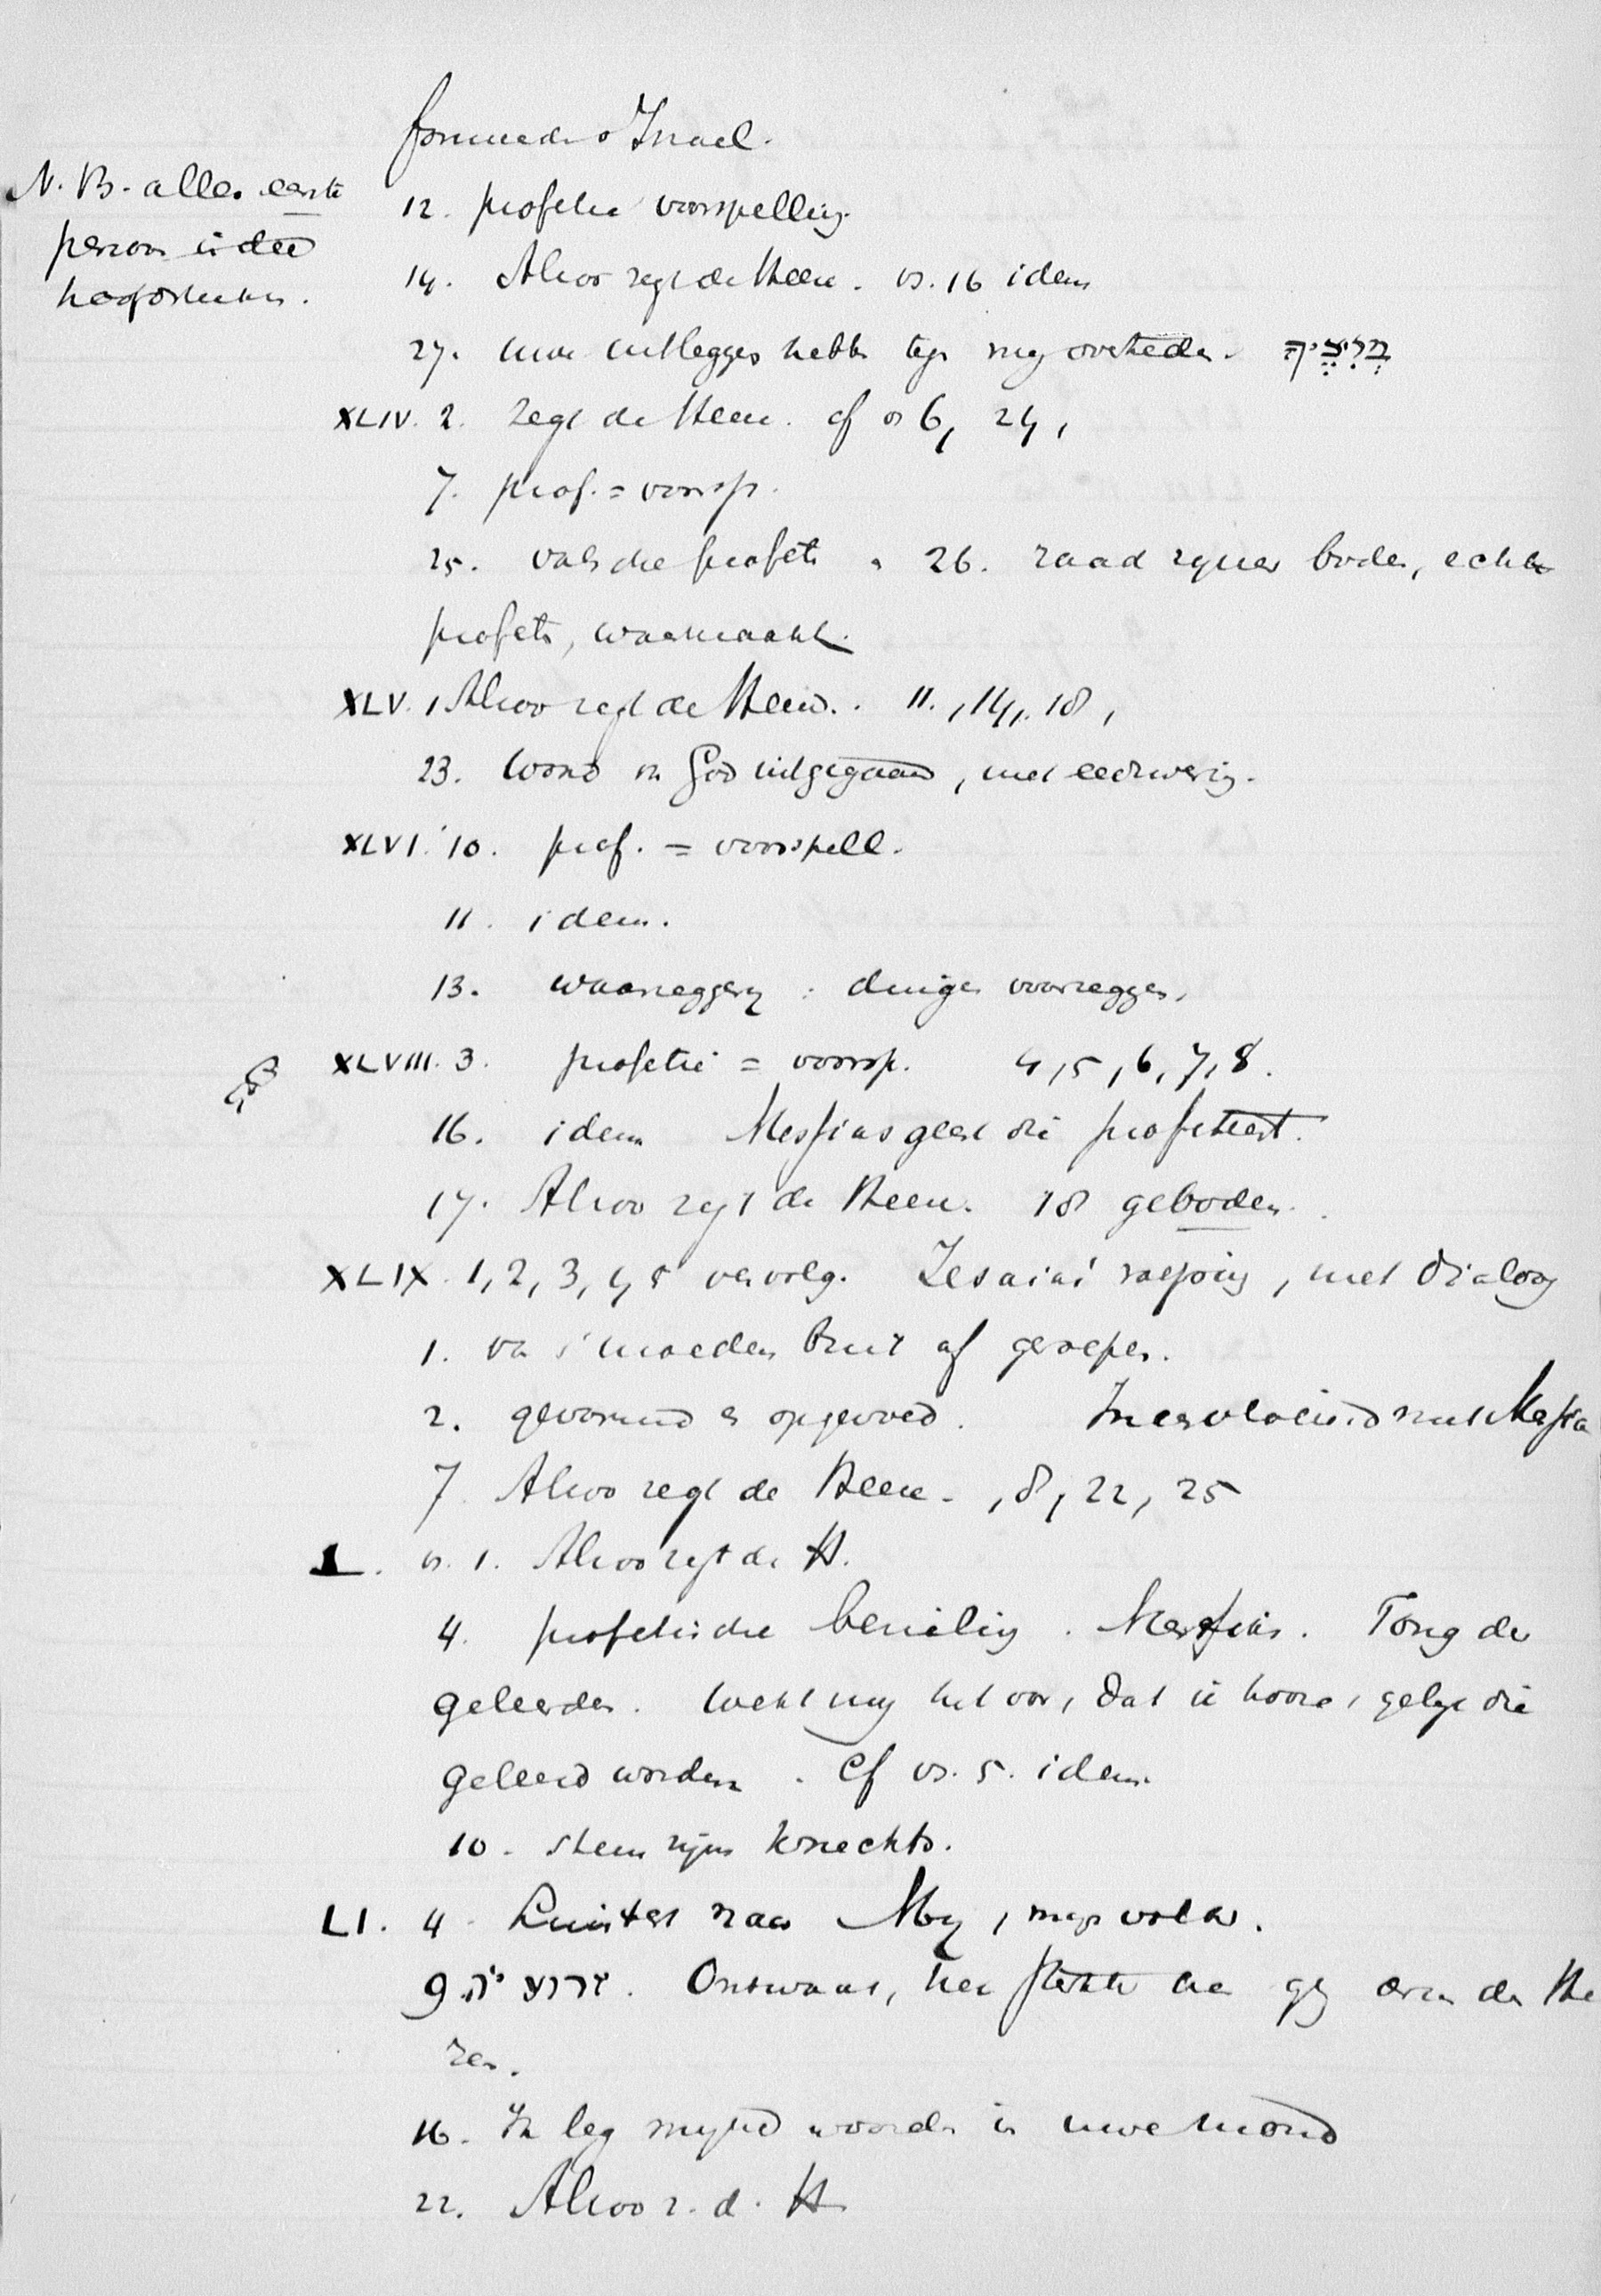 formeder o Israel.
N. B. alles eerste
persoon in dee
hoofdstukken.
12. profetie voorspelling.
14. Alzoo zegt de Heere. vs. 16 idem
27. uwe uitleggers hebben tegen my overtreden. מְלִיצֶיךָ
XLIV. 2. zegt de Heere. cf vs 6, 24,
7. prof. = voorsp.
25. valsche profeten. 26. raad zyner boden, echte
profeten, waarmaakt.
XLV. 1 Alzoo zegt de Heere. 11., 14,. 18,
23. Woord van God uitgegaan, met eedzwering.
XLVI. 10. prof. = voorspell.
11. idem.
13. waarzeggery : dingen voorzeggen.
XLVIII. 3. profetie = voorsp. 4, 5, 6, 7, 8.
16. idem Messias geest die profeteert.
17. Alzoo zegt de Heere. 18 geboden.
XLIX. 1, 2, 3, 4, 5 vervolg. Jesaias' roeping, met dialoog
1. van 's moeders buik af geroepen.
2. gevormd en opgevoed. met Messia
7. Alzoo zegt de Heere. , 8, 22, 25
L. vs. 1. Alzoo zegt de H.
4. profetische bezieling. Messias. Tong der
geleerden. Wekt my het oor, dat ik hoore, gelyk die
geleerd worden. Cf vs. 5. idem.
10. stem zijns knechts.
LI. 4. Luistert naar My, myn volk.
9. זרוע יי. Ontwaak, trek sterkte aan gy arm des Hee
ren.
16. Ik leg myne woorden in uwe mond
22. Alzoo z. d. H